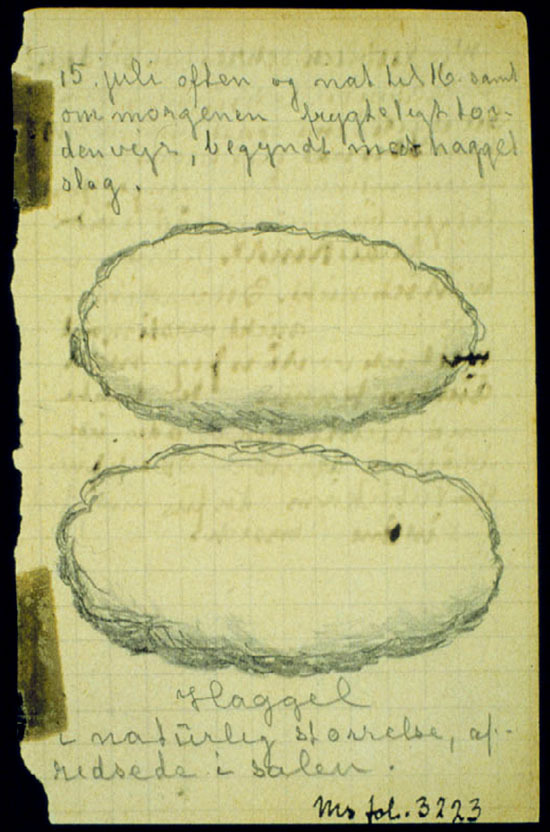 15. juli often og nat til 16. samt
om morgenen frygteligt too-
denvejr, begyndt med haggel
slag.
Haggel
i natürlig storrelse, af-
redsede i salen.
Ms fol. 3223